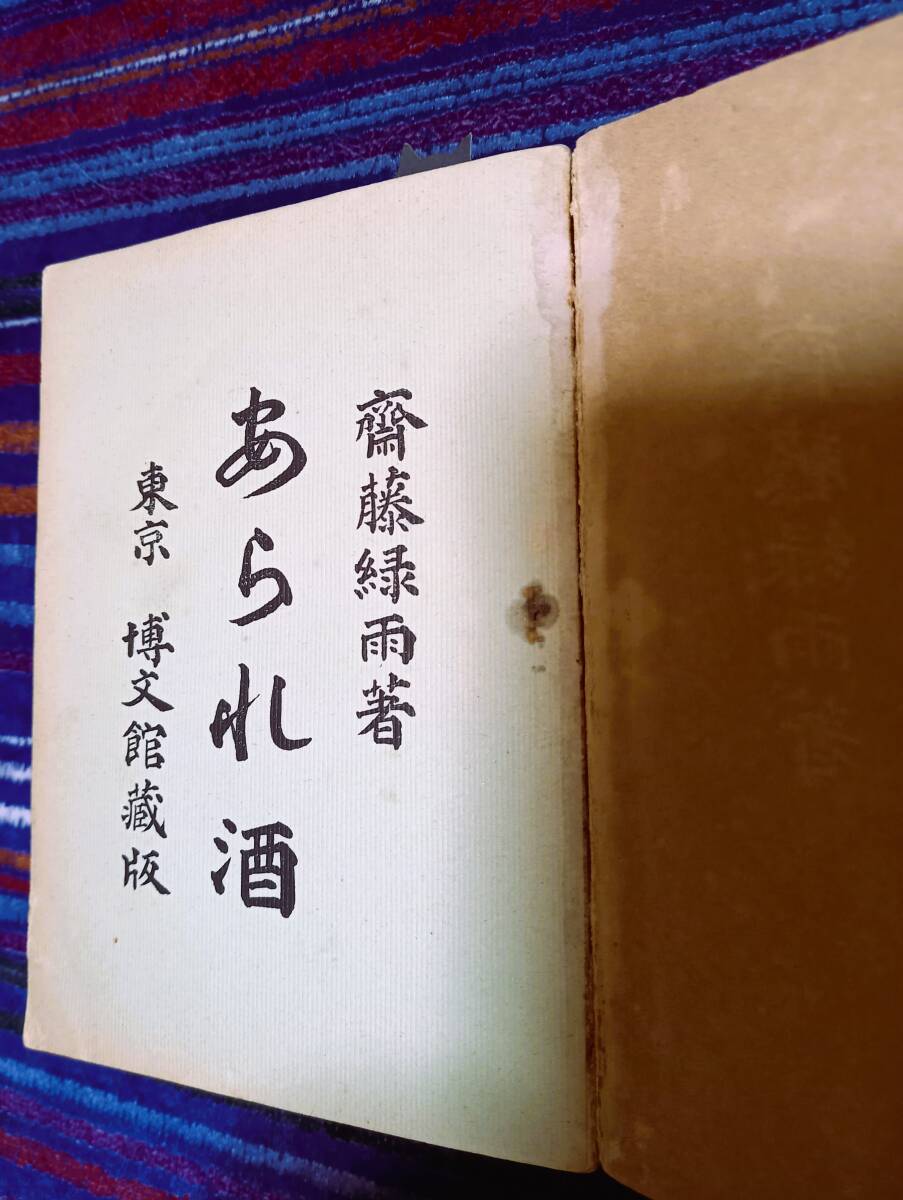 齋藤緑雨著
あられ酒
東京 博文館藏版